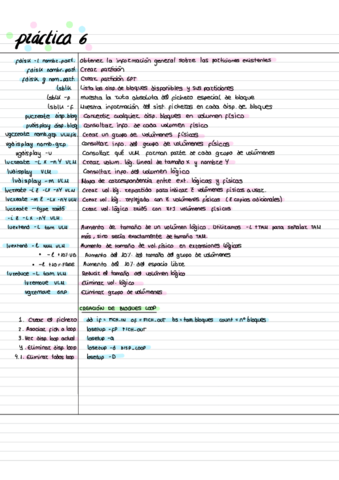 práctica 6
fdisk -l nombr. part. obtiene la información general sobre las particiones existentes
fdisk nombr. part. Crear partición
fdisk g nom. part. Crear partición GPT
lsblk Lista los disp. de bloques disponibles y sus particiones
lsblk -p muestra la ruta absoluta del fichero especial de bloque
lsblk -f Muestra información del sist. ficheros en cada disp. de bloques
pvcreate disp. blog Convertir cualquier disp. bloques en volumen físico
pvdisplay Consultar info. de cada volumen físico
vgcreate nombr.gv VLM/VF Crear un grupo de volúmenes físicos
vgdisplay nomb.gcp. Consultar info. del grupo de volúmenes
vgdisplay -v Consultar qué VLM forman parte de cada grupo de volúmenes
lvcreate -L X -n Y VLM Crear volum. lóg. lineal de tamaño X y nombre Y
lvdisplay VLM Consultar info. del volumen lógico
lvdisplay -m VLM Mapa de correspondencia entre ext. lógicas y físicas
Crear vol. lóg. repartido para indicar volúmenes físicos a usar.
Crear vol. lóg. reflejado con volúmenes físicos
Crear vol. lógico
Aumenta de tamaño de un volumen lógico. Utilizamos -L +TAM para señalar TAM
más, sino sería exactamente de tamaño TAM.
Aumento de tamaño de vol físico en extensiones lógicas
Aumento del del tamaño del grupo de volúmenes
Aumento del del espacio libre
lvreduce -L tam VLM Reducir el tamaño del volumen lógico
lvremove VLM Eliminar vol. lógico
vgremove Eliminar grupo de volúmenes
CREACIÓN DE BLOQUES LOOP
1. Crear el fichero dd if = FICH_IN of = FICH_OUT bs = tam bloques count = nº bloques
2. Asociar fich a loop losetup -fP FICH_OUT
3. Ver disp loop actual losetup -a
4. Eliminar disp loop losetup -d FICH_LOOP
4.1. Eliminar todos loop losetup -D